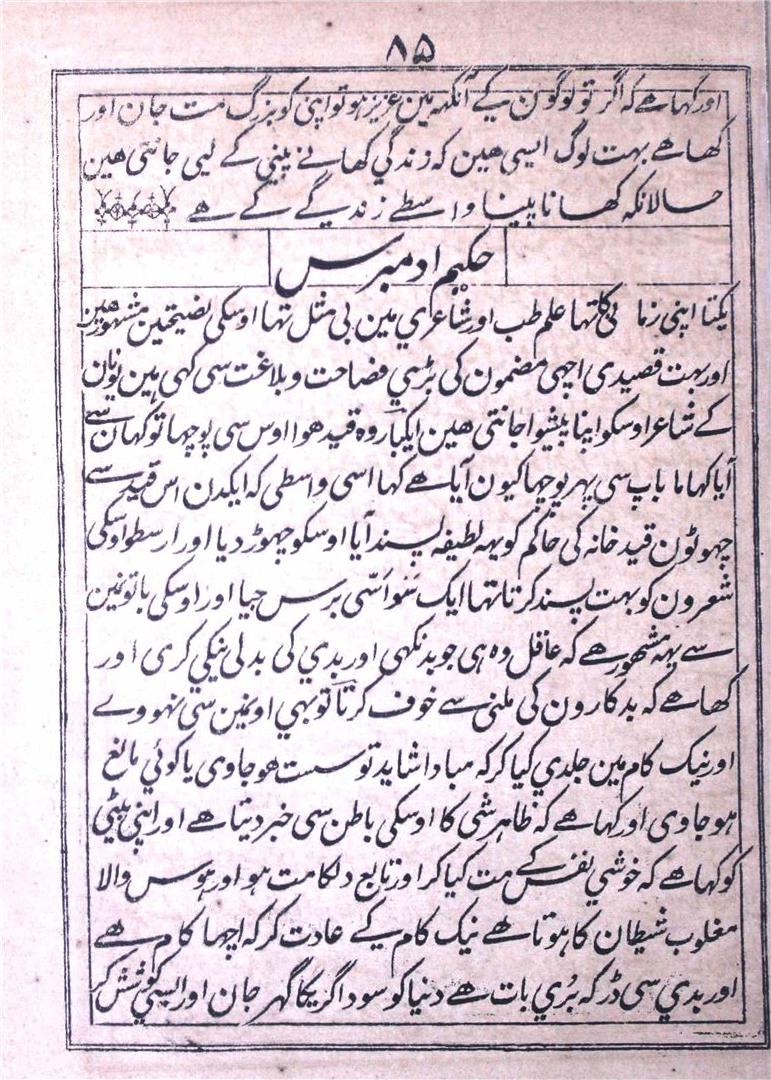 ۸۵
اور کہا ہے کہ اگر تو لوگون کے آنکہہ مین عزیز ہو تو اپنی کو بزرگ مت جان اور
کہا ہے بہت لوگ ایسی ہین کہ زندگی کہانے پینی کے لیی جانتی ہین
حالانکہ کہانا پینا واسطے زندیگے کے ہے
حکیم اومیرس
یکتا اپنی زمانی کا تہا علم طب اور شاعری مین بی مثل تہا اوسکی نصیحتین مشہور ہین
اور بہت قصیدی اچہی مضمون کی بڑی فصاحت و بلاغت سی کہی ہین یونان
کے شاعر اوسکو اپنا پیشوا جانتی ہین ایکبار وہ قید ہوا اوس سی پوچہا تو کہان سے
آیا کہا ما باپ سی پہر پوچہا کیون آیا ہے کہا اسی واسطی کہ ایکدن اس قید سے
چہوٹون قید خانہ کی حاکم کو یہہ لطیفہ پسند آیا اوسکو چہوڑ دیا اور ارسطو اوسکی
شعرون کو بہت پسند کرتا تہا ایک سو اسّی برس جیا اور اوسکی باتونمین
سے یہہ مشہور ہے کہ عاقل وہ ہی جو بد نکہی اور بدی کی بدلی نیکی کری اور
کہا ہے کہ بدکارون کی ملنی سے خوف کر تا تو بہی اونمین سی نہووے
اور نیک کام مین جلدی کیا کر کہ مبادا شاید تو سست ہو جاوی یا کوئی مانع
ہو جاوی اور کہا ہے کہ ظاہر شی کا اوسکی باطن سی خبر دیتا ہے اور اپنی بیٹی
کو کہا ہے کہ خوشی نفس کے مت کیا کر اور تابع دلکا مت ہو اور ہوس والا
مغلوب شیطان کا ہوتا ہے نیک کام کے عادت کر کہ اچہا کام ہے
اور بدی سی ڈر کہ بُری بات ہے دنیا کو سوداگریکا گہر جان اور ایسی کوشش کر